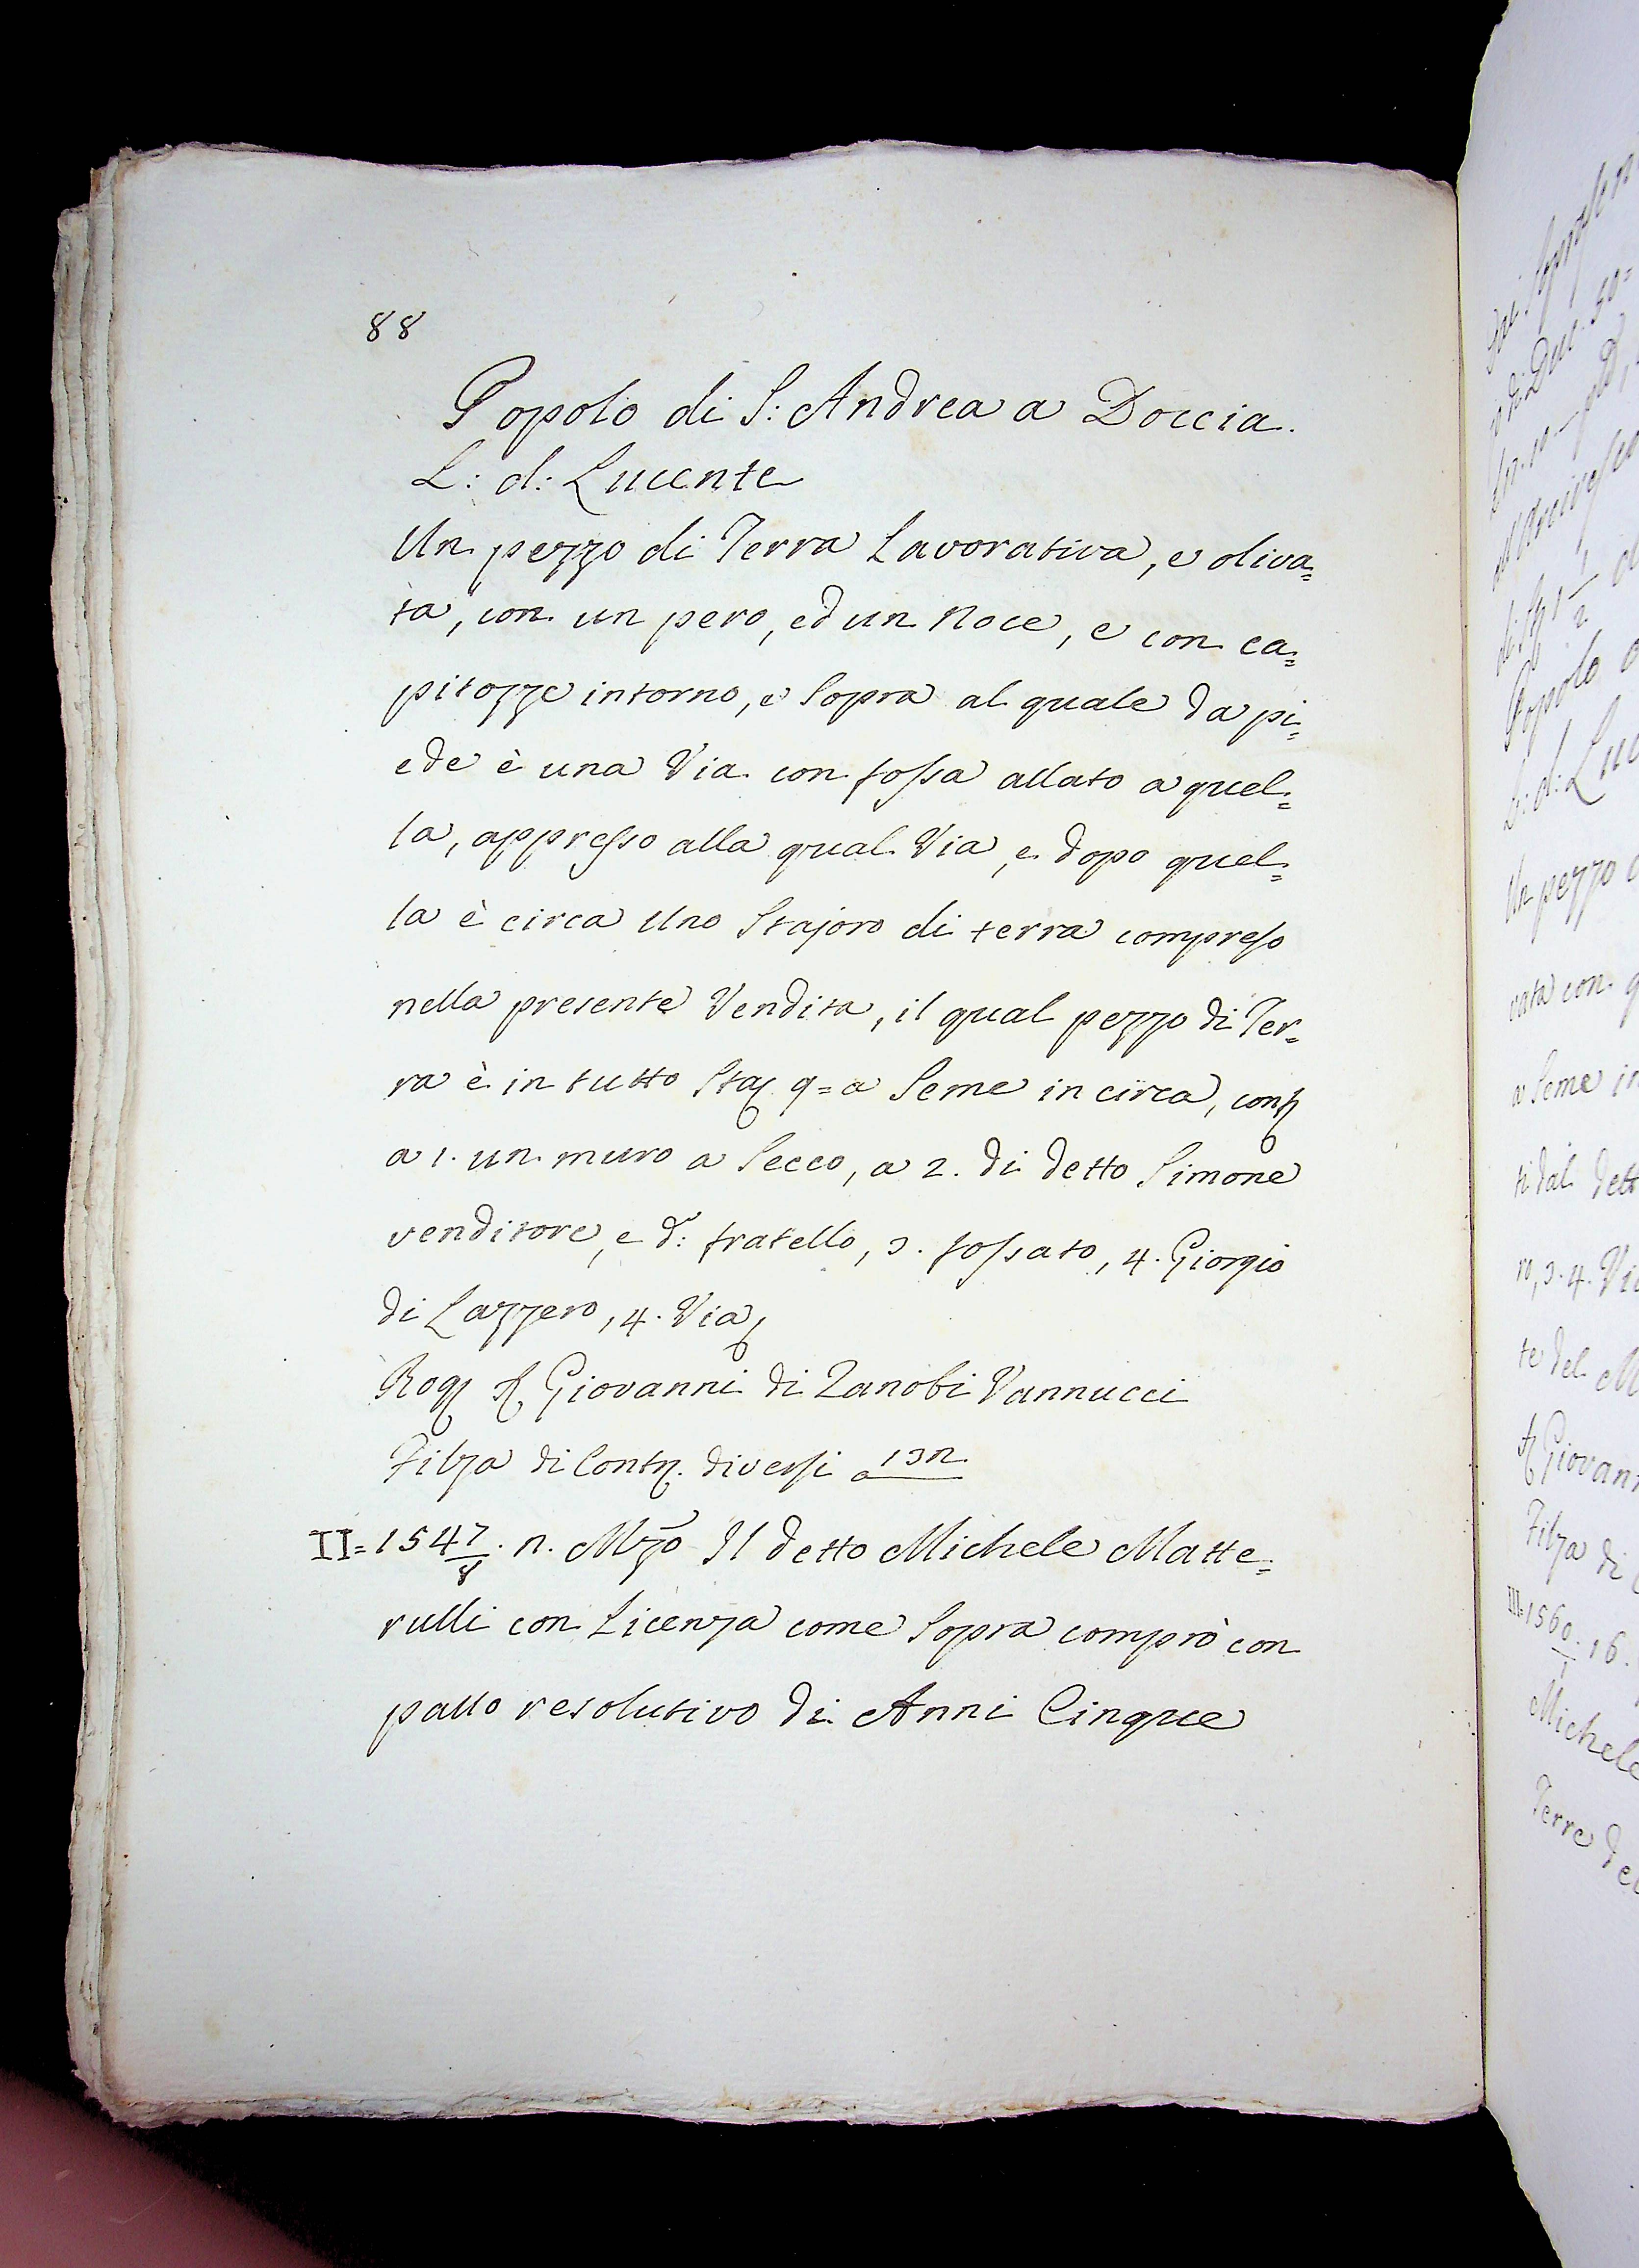 88
Popolo di S: Andrea a Doccia.
L: d: Lucente
Un pezzo di Terra Lavorativa, e oliva=
ta, con un pero, ed un Noce, e con ca=
pitozze intorno, e Sopra al quale da pi=
ede è una Via con fossa allato a quel=
la, appresso alla qual Via, e dopo quel=
la è circa Uno Stajoro di terra compreso
nella presente Vendita, il qual pezzo di Ter=
ra è in tutto Staj 9= a Seme in circa, conf
a 1. un muro a Secco, a 2. di detto Simone
venditore, e d: fratello, 3. fossato, 4. Giorgio
di Lazzero, 4. Via,
Rog Giovanni di Zanobi Vannucci
Filza di Contr. diversi a 132
II= 1547/8. n. Mzo Il detto Michele Matte=
rulli con Licenza come Sopra comprò con
patto resolutivo di Anni Cinque
Popolo
Un pezzo
a Seme in
te del M
Giovan
Filza di
III=1560/1. 16.
Michele